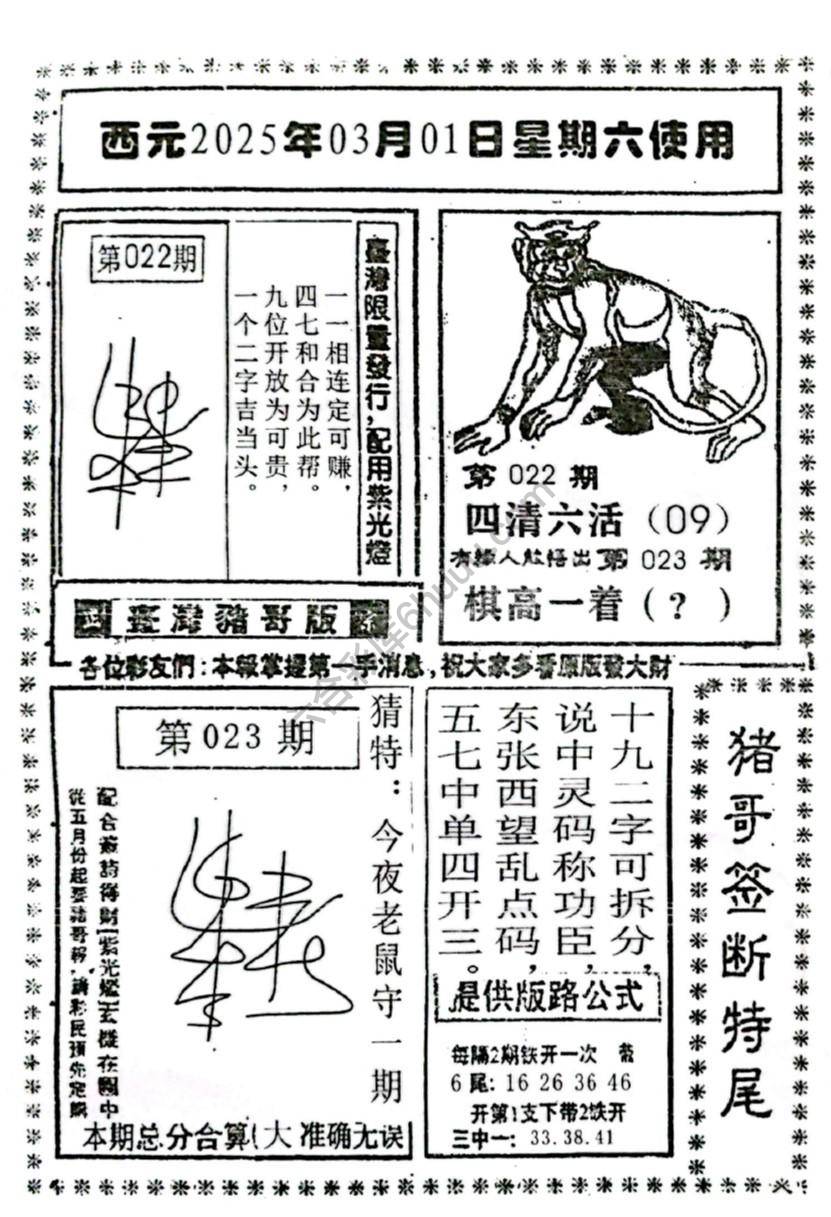 西元2025年03月01日星期六使用
第022期
一一相连定可赚，
四七和合为此帮。
九位开放为可贵，
一个二字吉当头。
臺灣限量發行，配用紫光燈
第 022 期
四清六活（09）
有緣人能悟出第 023 期
棋高一着（？）
臺灣豬哥版
各位彩友們：本報掌握第一手消息，祝大家多看原版發大財
第 023 期
猜特：今夜老鼠守一期
從五月份起要豬哥報，請彩民預先定購
本期总分合算(大 准确无误
十九二字可拆分，
说中灵码称功臣，
东张西望乱点码，
五七中单四开三。
提供版路公式
每隔2期铁开一次 带
6尾：16 26 36 46
开第1支下带2铁开
三中一：33.38.41
猪哥签断特尾
六合彩库6huuu.com